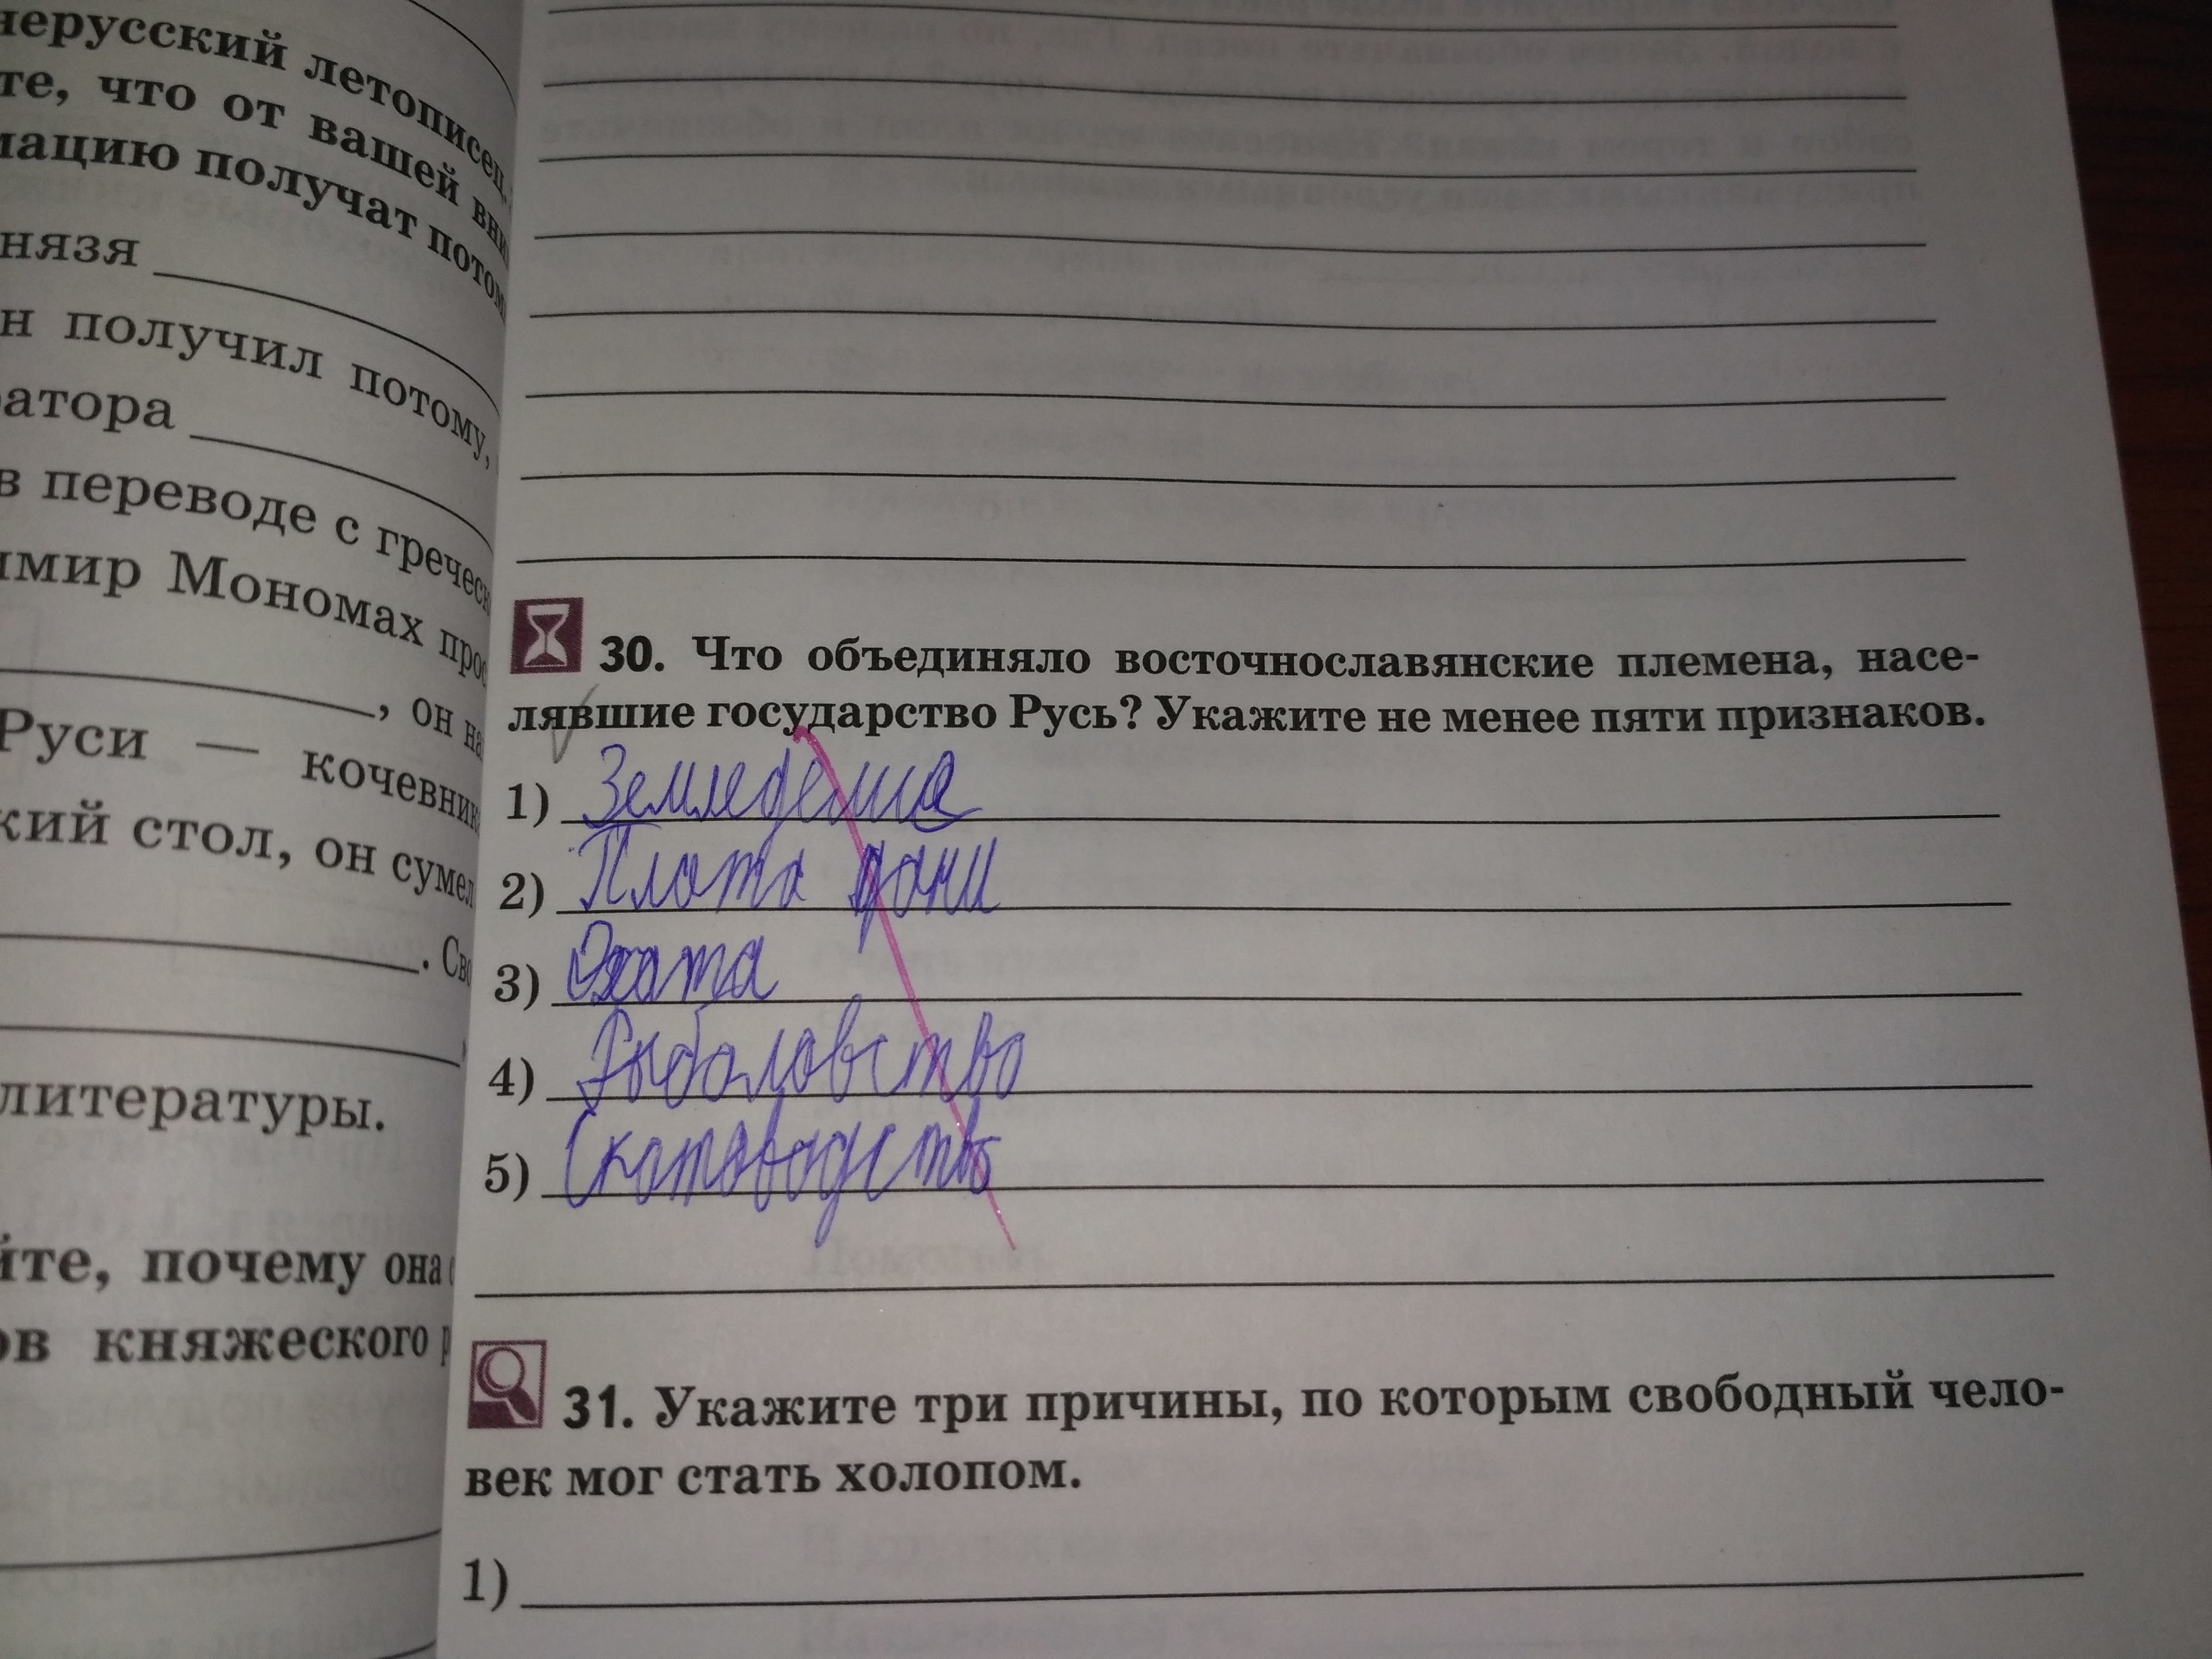 нерусский летописец
те, что от вашей
мацию получат
нязя
н получил потому,
ратора
в переводе с
имир Мономах
, он
Руси — кочевник
кий стол, он
литературы.
йте, почему она
ов княжеского
30. Что объединяло восточнославянские племена, насе-
лявшие государство Русь? Укажите не менее пяти признаков.
1) Земледелие
2) Плата дани
3) Охота
4) Рыболовство
5) Скотоводство
31. Укажите три причины, по которым свободный чело-
век мог стать холопом.
1)